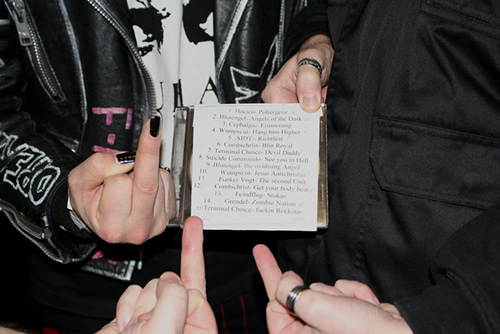 1. Hocico- Poltergeist
2. Blutengel- Angels of the Dark
3. Cephalgy- Erinnerung
4. Wumpscut- Hang him Higher
5. ASDT- Richtfest
6. Combichrist- Blut Royal
7. Terminal Choice- Devil Daddy
8. Suicide Commando- See you in Hell
9. Blutengel- the oxidising Angel
10. Wumpscut- Jesus Antichristus
11. Funker Vogt- The second Unit
12. Combichrist- Get your body beat
13. Feindflug- Stukas
14. Grendel- Zombie Nation
15. Terminal Choice- Fuckin Rockstar